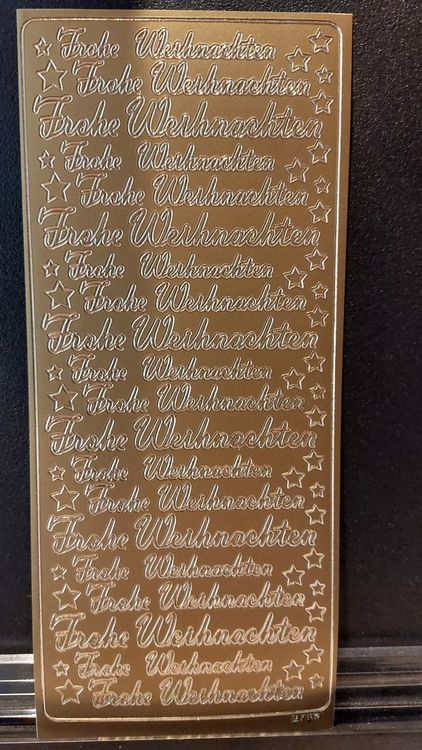 Frohe Weihnachten
Frohe Weihnachten
Frohe Weihnachten
Frohe Weihnachten
Frohe Weihnachten
Frohe Weihnachten
Frohe Weihnachten
Frohe Weihnachten
Frohe Weihnachten
Frohe Weihnachten
Frohe Weihnachten
Frohe Weihnachten
Frohe Weihnachten
Frohe Weihnachten
Frohe Weihnachten
Frohe Weihnachten
Frohe Weihnachten
Frohe Weihnachten
Frohe Weihnachten
Frohe Weihnachten